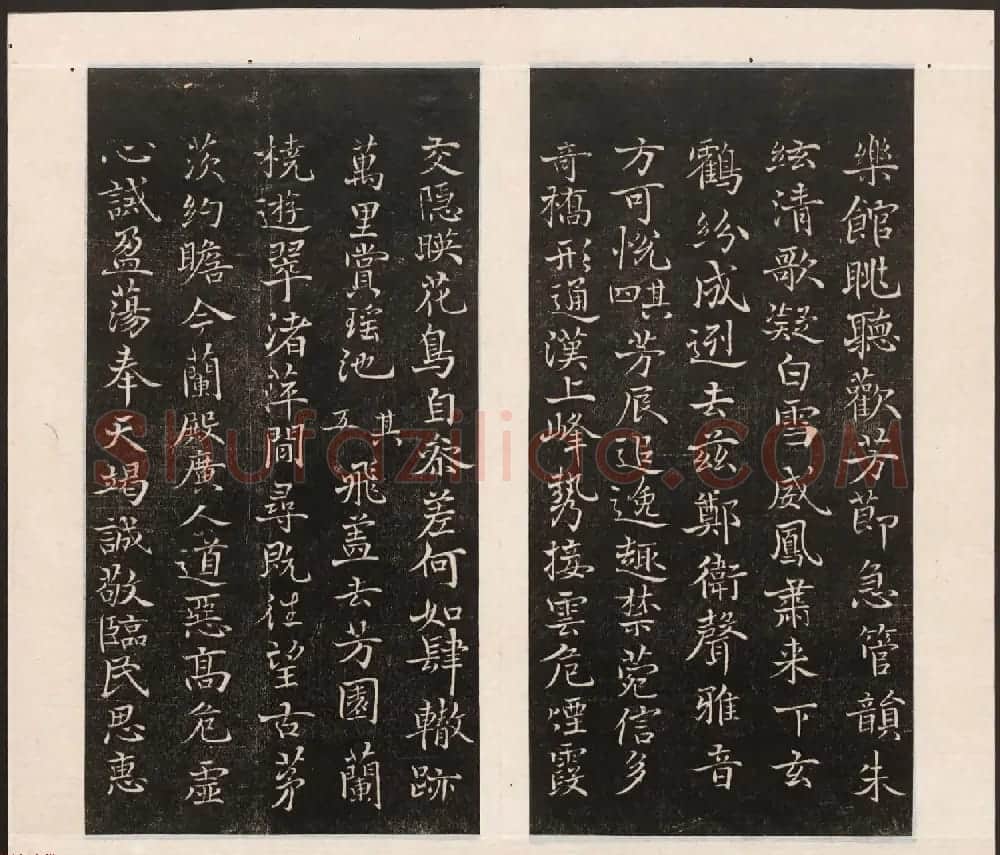 樂館眺聽歡芳節急管韻朱
絃清歌凝白雪威鳳肅来下玄
鶴紛成迾去兹鄭衛聲雅音
方可悦其四芳辰追逸趣禁菀信多
奇橋形通漢上峰勢接雲危煙霞
交隠暎花鳥自參差何如肆轍跡
萬里賞瑶池其五飛盖去芳園蘭
橈遊翠渚萍間尋既往望古茅
茨約瞻今蘭殿廣人道惡髙危虚
心誡盈蕩奉天竭誠敬臨民思惠
Shufaziliao.COM